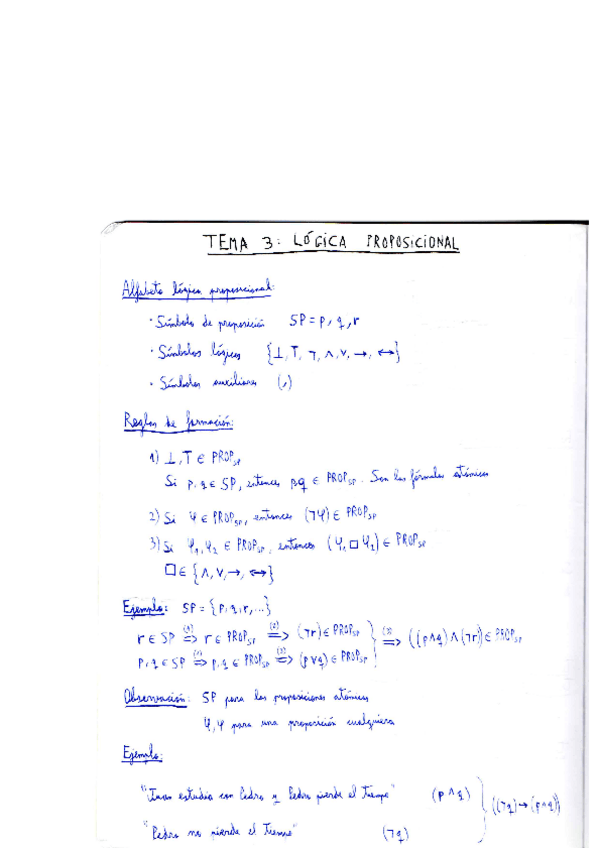 TEMA 3: LÓGICA PROPOSICIONAL
Alfabeto lógica proposicional:
· Símbolo de proposición SP = p, q, r
· Símbolos lógicos {⊥, T, ¬, ∧, ∨, →, ↔}
· Símbolos auxiliares (,)
Reglas de formación:
1) ⊥, T ∈ PROP_SP
Si p, q ∈ SP, entonces p,q ∈ PROP_SP. Son las fórmulas atómicas
2) Si φ ∈ PROP_SP, entonces (¬φ) ∈ PROP_SP
3) Si φ₁, φ₂ ∈ PROP_SP, entonces (φ₁ □ φ₂) ∈ PROP_SP
□ ∈ {∧, ∨, →, ↔}
Ejemplo: SP = {p, q, r, ...}
r ∈ SP ⇒(1) r ∈ PROP_SP ⇒(2) (¬r) ∈ PROP_SP } ⇒(3) ((p∧q) ∧ (¬r)) ∈ PROP_SP
p, q ∈ SP ⇒(1) p, q ∈ PROP_SP ⇒(3) (p∨q) ∈ PROP_SP
Observación: SP para las proposiciones atómicas
φ, ψ para una proposición cualquiera
Ejemplo:
estudia con Pedro y Pedro pierde el tiempo" (p ∧ q) } ((¬q) → (p∧q))
"Pedro no pierde el tiempo" (¬q)